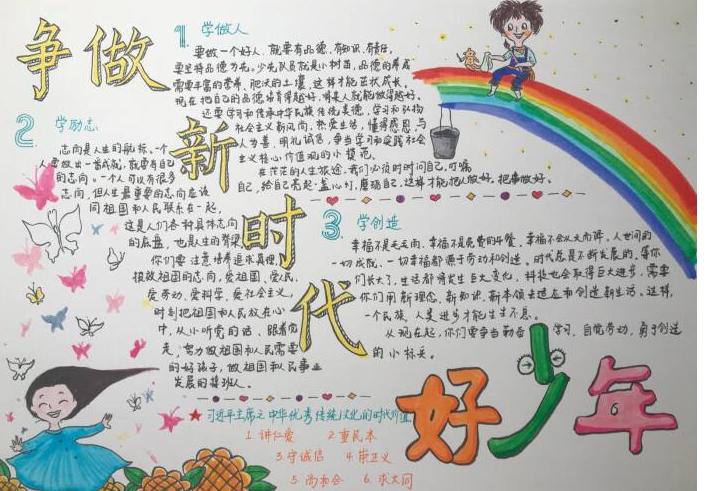 争做
新
时
代
好少年
1 学做人
要做一个好人,就要有品德、有知识、有责任,
要坚持品德为先。少先队员就是小树苗,品德的养成
需要丰富的营养、肥沃的土壤,这样才能茁壮成长。
现在把自己的品德培育得越好,将来人就能做得越好。
还要学习和传承中华民族传统美德,学习和弘扬
社会主义新风尚,热爱生活,懂得感恩,与
人为善,明礼诚信,争当学习和实践社会
主义核心价值观的小模范。
在茫茫的人生旅途,我们必须时时问自己,叮嘱
自己,给自己
磨砺自己,这样才能把人做好,把事做好。
2 学励志
志向是人生的航标。一个
人要做出一番成就,就要有自己
的志向。一个人可以有很多
志向,但人生最重要的志向应该
同祖国和人民联系在一起,
这是人们各种具体志向
的底盘,也是人生的脊梁。
你们要注意培养追求真理、
报效祖国的志向,爱祖国、爱人民、
爱劳动、爱科学、爱社会主义,
时刻把祖国和人民放在心
中,从小听党的话、跟着党
走,努力做祖国和人民需要
的好孩子,做祖国和人民事业
发展的接班人。
3 学创造
幸福不是毛毛雨,幸福不是免费的午餐,幸福不会从天而降。人世间的
一切成就、一切幸福都源于劳动和创造。时代总是不断发展的,等你
们长大了,生活都将发生巨大变化,科技也会取得巨大进步,需要
你们用新理念、新知识、新本领去适应和创造新生活。这样,
一个民族、人类进步才能生生不息。
从现在起,你们要争当勤奋学习、自觉劳动、勇于创造
的小标兵。
★习近平主席之中华优秀传统文化的时代价值
1 讲仁爱 2 重民本
3 守诚信 4 崇正义
5 尚和合 6 求大同